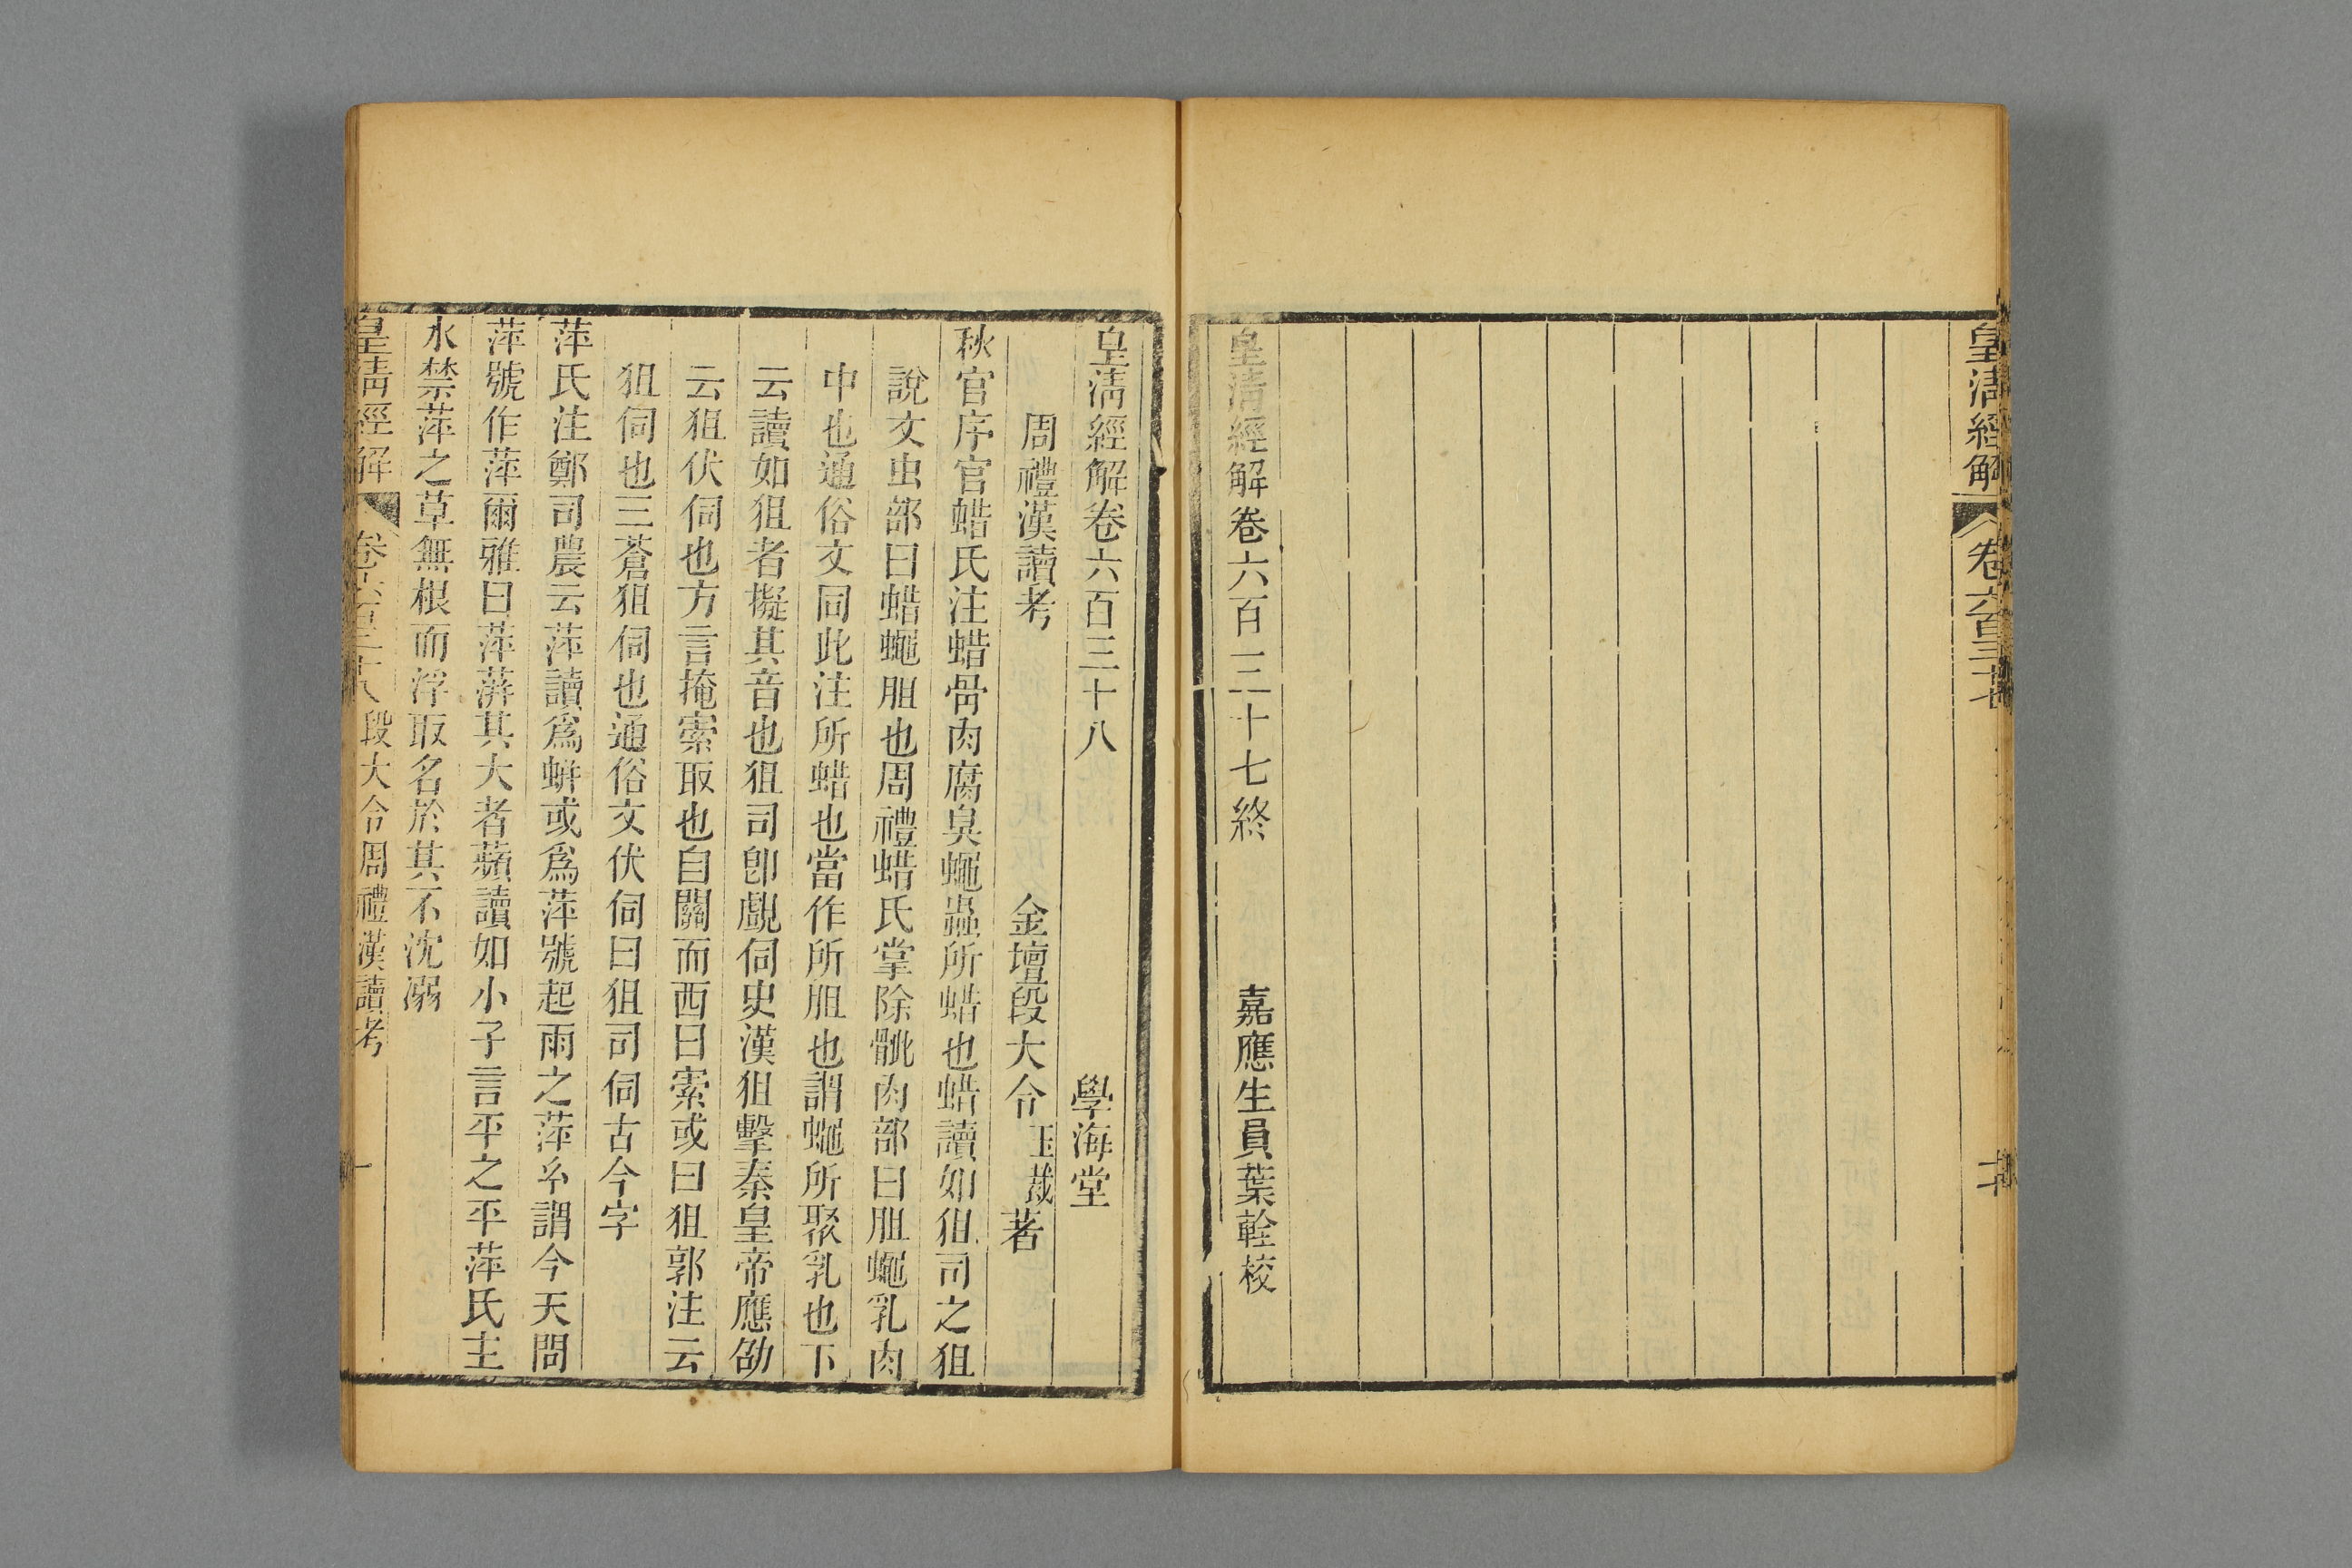 皇淸經解
卷六百三十七
皇淸經解卷六百三十七終
嘉應生員葉輇校
皇淸經解卷六百三十八
學海堂
周禮漢讀考
金壇段大令玉裁著
秋官序官蜡氏注蜡骨肉腐臭蠅蟲所蜡也蜡讀如狙司之狙
說文虫部曰蜡蠅胆也周禮蜡氏掌除骴肉部曰胆蠅乳肉
中也通俗文同此注所蜡也當作所胆也謂蠅所聚乳也下
云讀如狙者擬其音也狙司卽覷伺史漢狙擊秦皇帝應劭
云狙伏伺也方言掩索取也自關而西曰索或曰狙郭注云
狙伺也三蒼狙伺也通俗文伏伺曰狙司伺古今字
萍氏注鄭司農云萍讀爲蛢或爲萍號起雨之萍糸謂今天問
萍號作萍爾雅曰萍蓱其大者蘋讀如小子言平之平萍氏主
水禁萍之草無根而浮取名於其不沈溺
皇淸經解
卷六百三十八
段大令周禮漢讀考
一